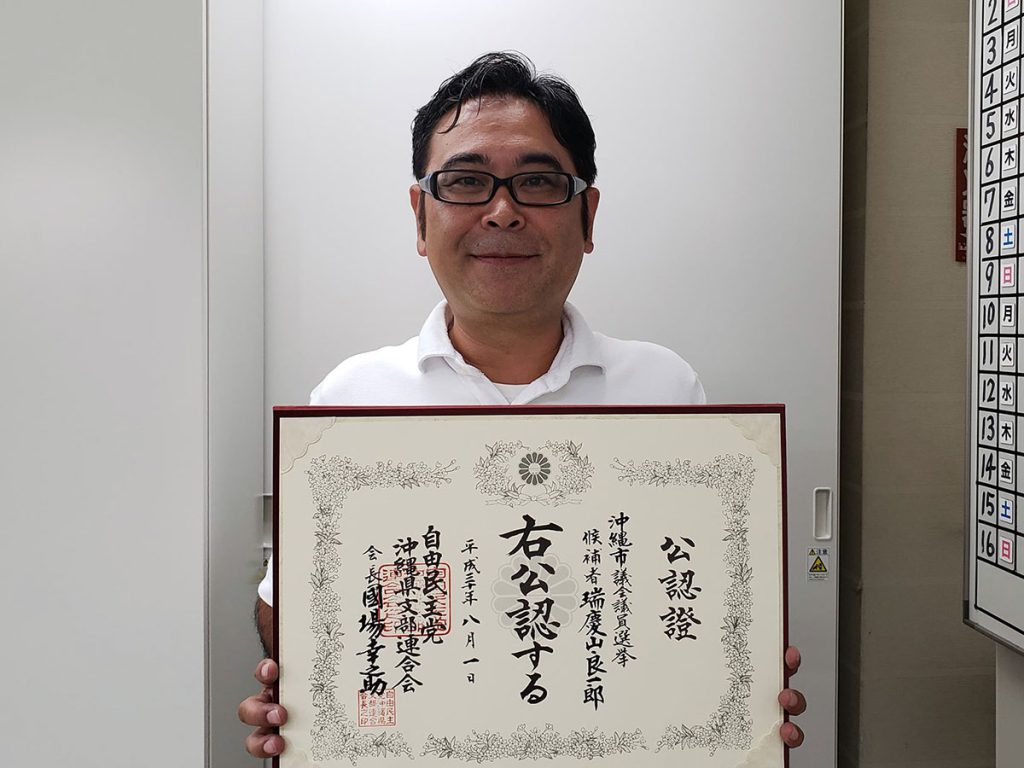 公認證
沖縄市議会議員選挙
候補者 瑞慶山良一郎
右公認する
平成三十年八月一日
自由民主党
沖縄県支部連合会
会長 國場幸之助
注意
2 日
3 月
4 火
5 水
6 木
7 金
8 土
9 日
10 月
11 火
12 水
13 木
14 金
15 土
16 日